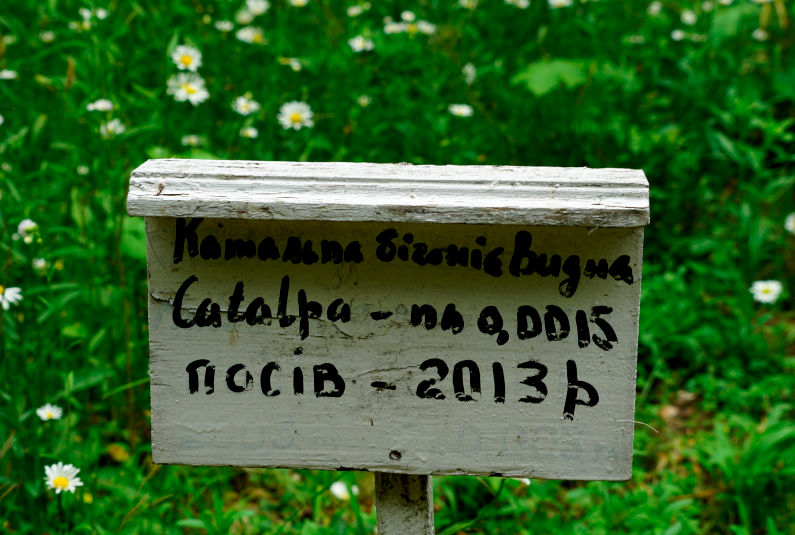 Катальпа бігонієвидна
Catalpa - пл 0,0015
посів - 2013 р